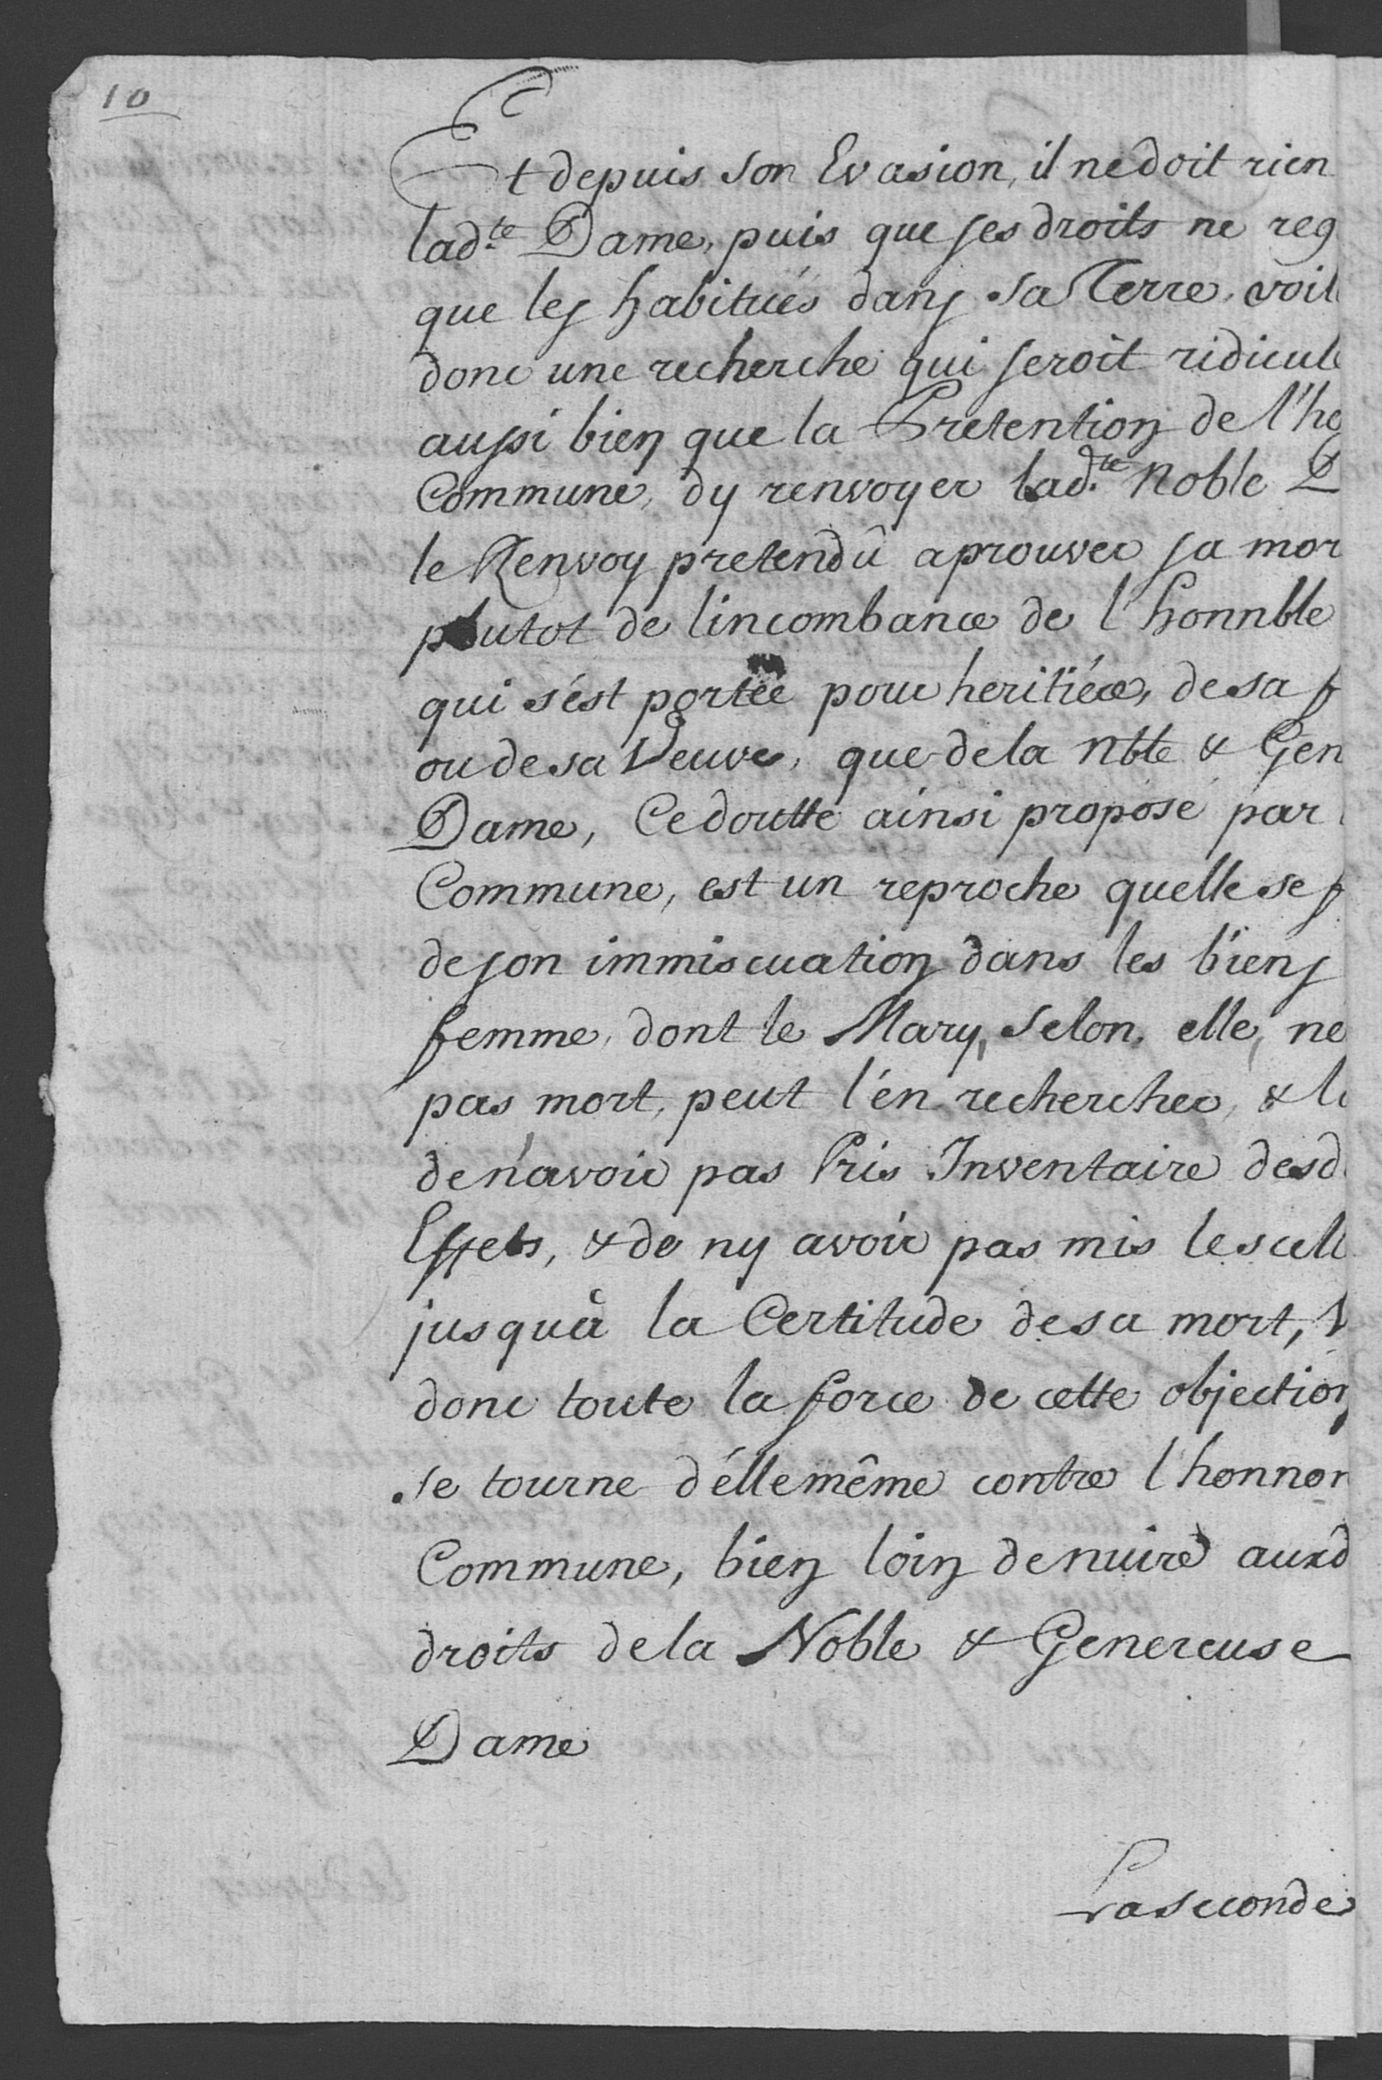 10
Et depuis son Evasion, il ne doit rien
lad.te Dame, puis que ses droits ne reg
que les habitués dans sa Terre, voil
donc une recherche qui seroit ridicule
aussi bien que la Pretention de l'ho
Commune, dy renvoyer lad.te Noble D
le Renvoy pretendû aprouver sa mor
plutot de lincombance de l'honnble
qui s'ést portée pour heritiére, de sa f
ou de sa Veuve, que de la Nble & Gen
Dame, Ce doutte ainsi proposé par
Commune, est un reproche quelle se f
de son immiscuation dans les biens
femme, dont le Mary, selon, elle, ne
pas mort, peut l'én rechercher, & l
de n'avoir pas Pris Inventaire desd
Effets, & de ny avoir pas mis le scell
jusquà la Certitude de sa mort, V
donc toute la force de cette objection
se tourne d'élle même contre l'honnor
Commune, bien loin de nuire auxd
droits de la Noble & Genereuse
Dame
La seconde